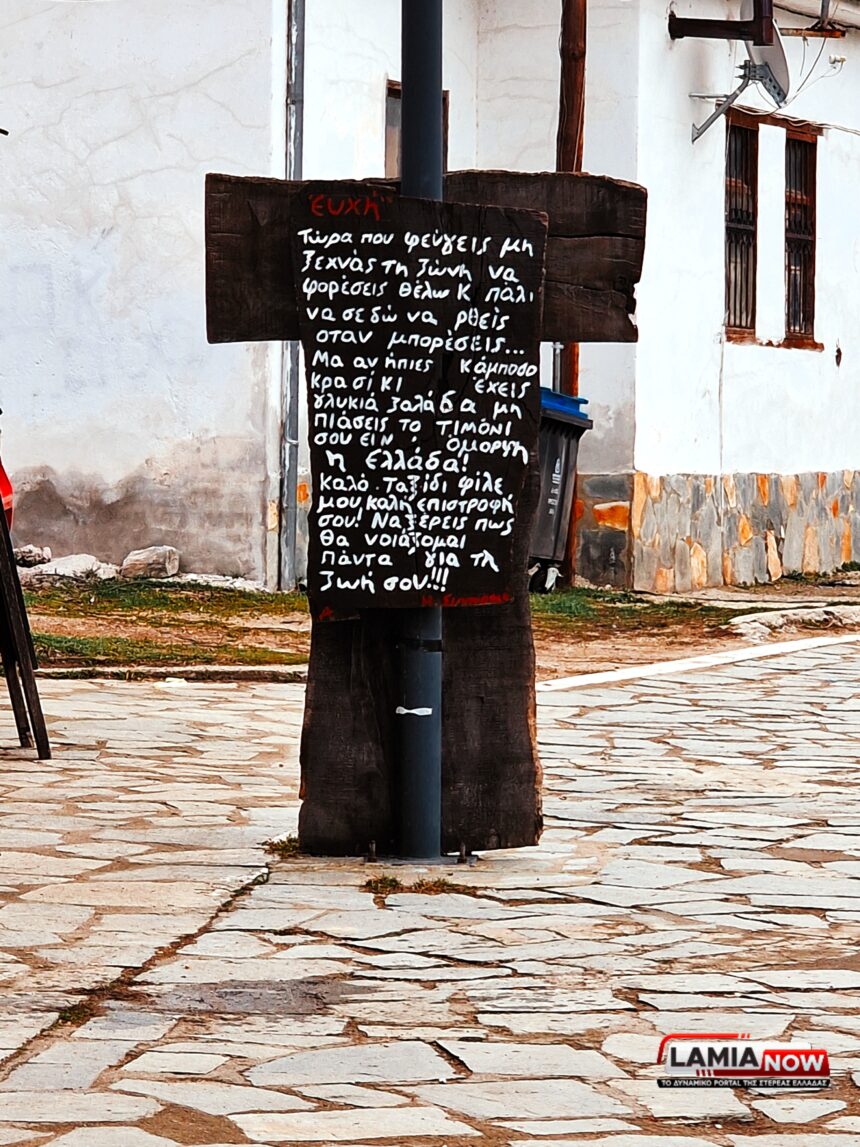 "Ευχή"
Τώρα που φεύγεις μη
ξεχνάς τη ζώνη να
φορέσεις θέλω κ πάλι
να σε δώ να ρθείς
οταν μπορέσεις...
Μα αν ήπιες κάμποσο
κρασί κι έχεις
γλυκιά ζαλάδα μη
πιάσεις το τιμόνι
σου ειν' όμορφη
η Ελλάδα!
Καλό ταξίδι φίλε
μου καλή επιστροφή
σου! Να ξέρεις πως
θα νοιάζομαι
πάντα για τη
ζωή σου!!!
LAMIA NOW
ΤΟ ΔΥΝΑΜΙΚΟ PORTAL ΤΗΣ ΣΤΕΡΕΑΣ ΕΛΛΑΔΑΣ